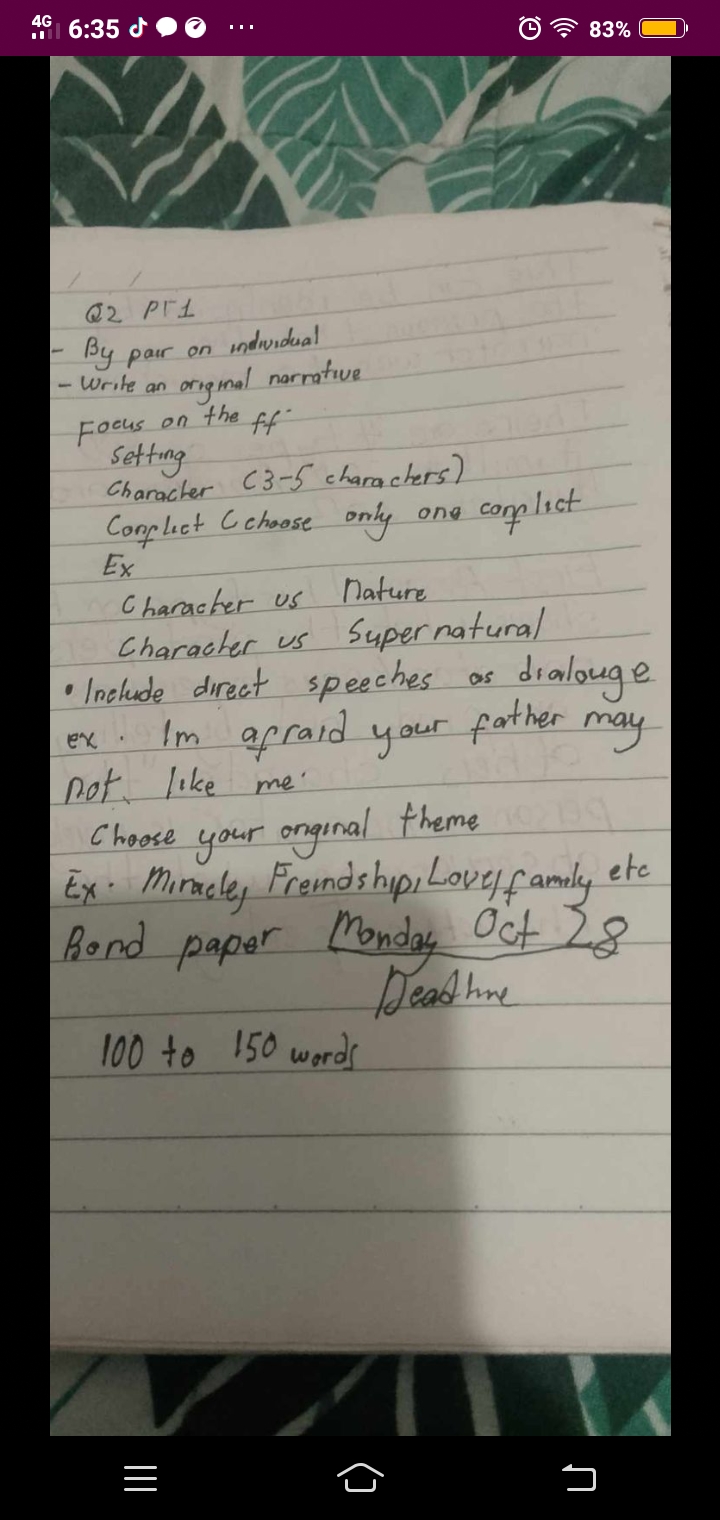 4G 6:35 ... 83%
Q2 PT1
- By pair on individual
- Write an original narrative
Focus on the ff.
Setting
Character (3-5 characters)
Conflict (choose only one conflict
Ex
Character vs Nature
Character vs Supernatural
• Include direct speeches as dialouge
ex. Im afraid your father may
not like me.
Choose your original theme
Ex. Miracle, Freindship, Love, family etc
Bond paper Monday Oct 28
Deadline
100 to 150 words